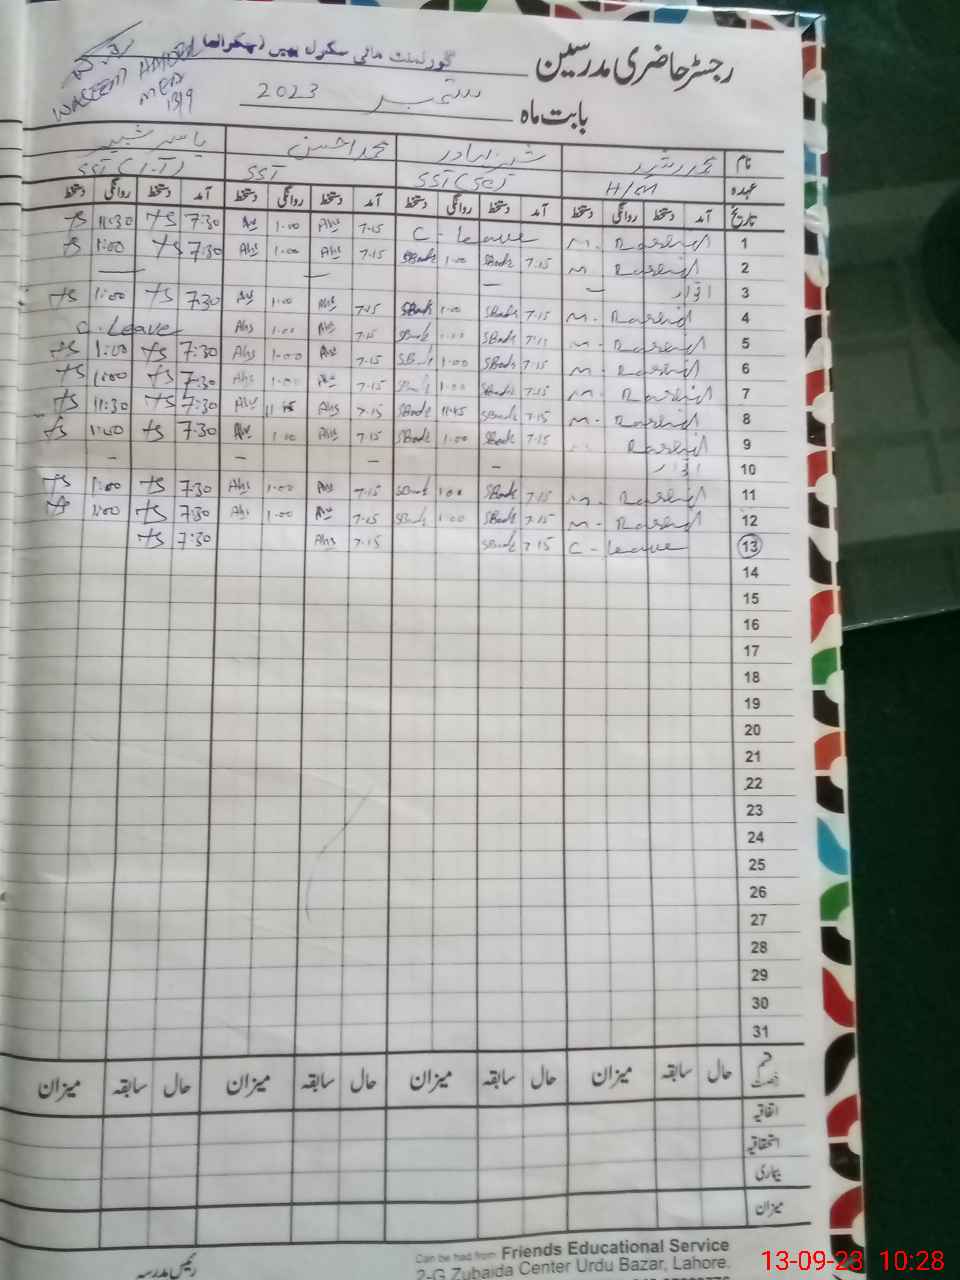 رجسٹر حاضری مدرسین گورنمنٹ ہائی سکول بھیں (چکوال)
WASEEM AHMED
MEA
13/9
بابت ماہ ستمبر 2023
نام محمد رشید شیر بہادر محمد احسن یاسر شبیر
عہدہ H/M SST(Sc) SST SST(I.T)
تاریخ آمد دستخط روانگی دستخط آمد دستخط روانگی دستخط آمد دستخط روانگی دستخط آمد دستخط روانگی دستخط
1 M. Rashid C-leave 7.15 Ahs 1.00 7:30 11:30
2 M. Rashid 7.15 SBadr 1.00 SBadr 7.15 Ahs 1.00 Ahs 7:30 1:00
3 اتوار — — — —
4 M. Rashid 7.15 SBadr 1.00 SBadr 7.15 Ahs 1.00 7:30 1:00
5 M. Rashid 7.15 SBadr 1.00 SBadr 7.15 1.00 Ahs C.Leave
6 M. Rashid 7.15 SBadr 1.00 SBadr 7.15 1.00 Ahs 7:30 1:00
7 M. Rashid 7.15 SBadr 1.00 SBadr 7.15 1.00 Ahs 7:30 1:00
8 M. Rashid 7.15 SBadr 11.45 SBadr 7.15 Ahs 11.45 7:30 11:30
9 M. Rashid 7.15 SBadr 1.00 SBadr 7.15 Ahs 1.00 7:30 1:00
10 اتوار — — — —
11 M. Rashid 7.15 SBadr 1.00 SBadr 7.15 1.00 Ahs 7:30 1:00
12 M. Rashid 7.15 SBadr 1.00 SBadr 7.15 1.00 Ahs 7:30 1:00
13 C-leave 7.15 SBadr 7.15 Ahs 7:30
14
15
16
17
18
19
20
21
22
23
24
25
26
27
28
29
30
31
قسم رخصت حال سابقہ میزان حال سابقہ میزان حال سابقہ میزان حال سابقہ میزان
اتفاقیہ
استحقاقیہ
بیماری
میزان
رئیس مدرسہ
Can be had from Friends Educational Service
2-G Zubaida Center Urdu Bazar, Lahore.
13-09-23 10:28